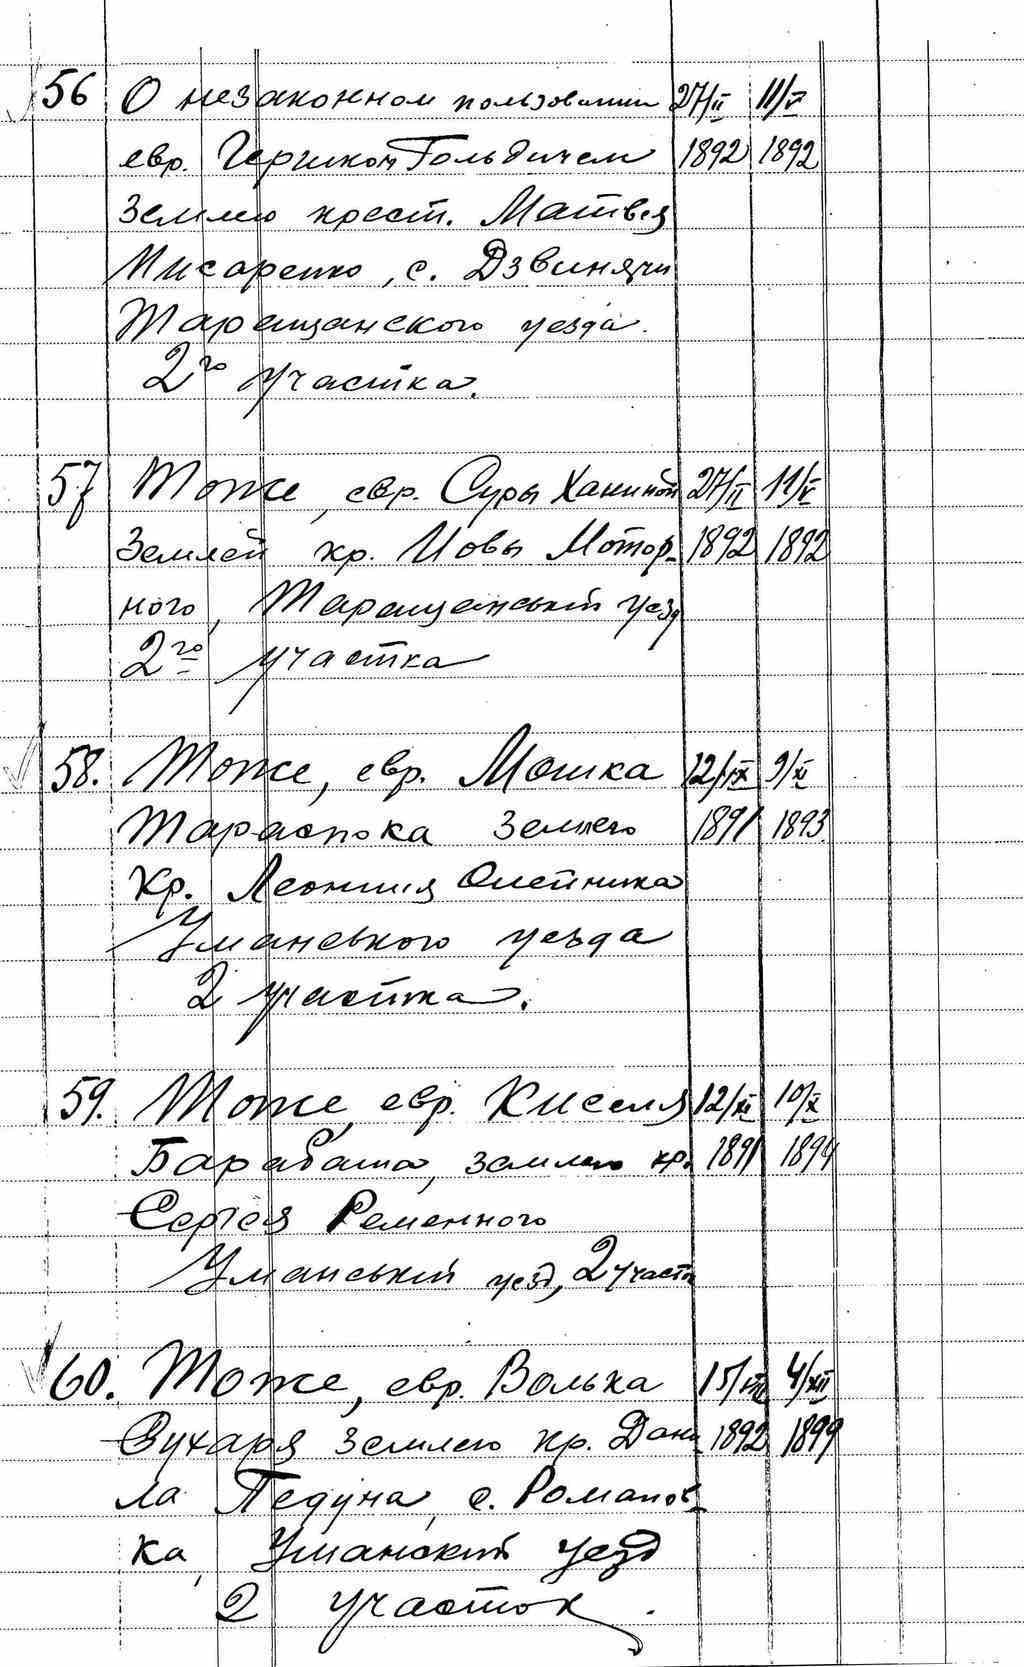 56 О незаконном пользовании 27/II 11/V
евр. Гершком Гольдичем 1892 1892
землею крест. Матвея
Писаренко, с. Дзвинячи
Таращанского уезда.
2го участка.
57 Тоже, евр. Суры Ханиной 27/II 11/V
землей кр. Иовы Мотор- 1892 1892
ного, Таращанський уезд
2го участка
58. Тоже, евр. Мошка 12/IX 9/XI
землею 1891 1893
кр. Леонтия Олейника
Уманського уезда
2 участка.
59. Тоже, евр. Киселя 12/XI 10/X
Барабаша, землею кр. 1891 1894
Сергея Ременного
Уманський уезд, 2 участок
60. Тоже, евр. Волька 15/VIII 4/XII
Вухаря землею кр. Дани- 1892 1899
ла Педуна, с. Романов-
ка, Уманский уезд
2 участок.